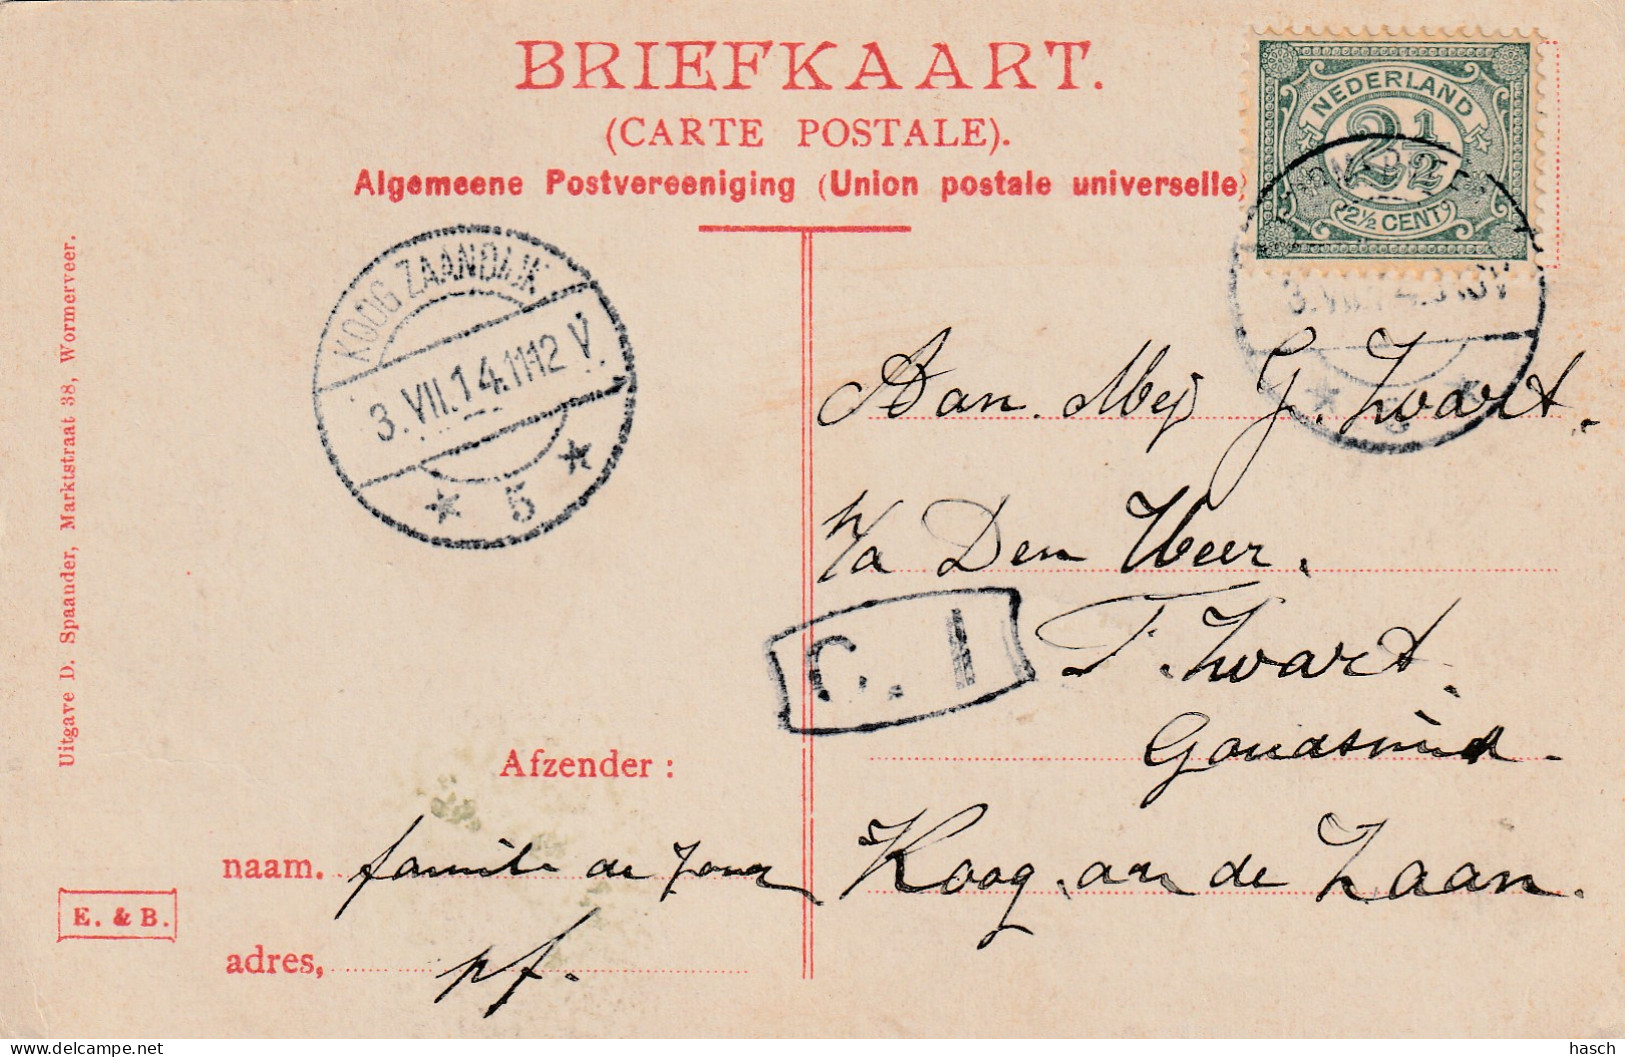 BRIEFKAART.
(CARTE POSTALE).
Algemeene Postvereeniging (Union postale universelle)
NEDERLAND
2½
2½ CENT
3.VII.14.
5
KOOG ZAANDIJK
3.VII.14.11-12 V.
* 5 *
Uitgave D. Spaander, Marktstraat 38, Wormerveer.
Aan. Mej G. Zwart.
p/a Den Heer.
T. Zwart.
Goudsmid.
Koog. aan de Zaan.
C. I
Afzender :
naam. familie de Jong
adres, pf.
E. & B.
hasch
delcampe.net